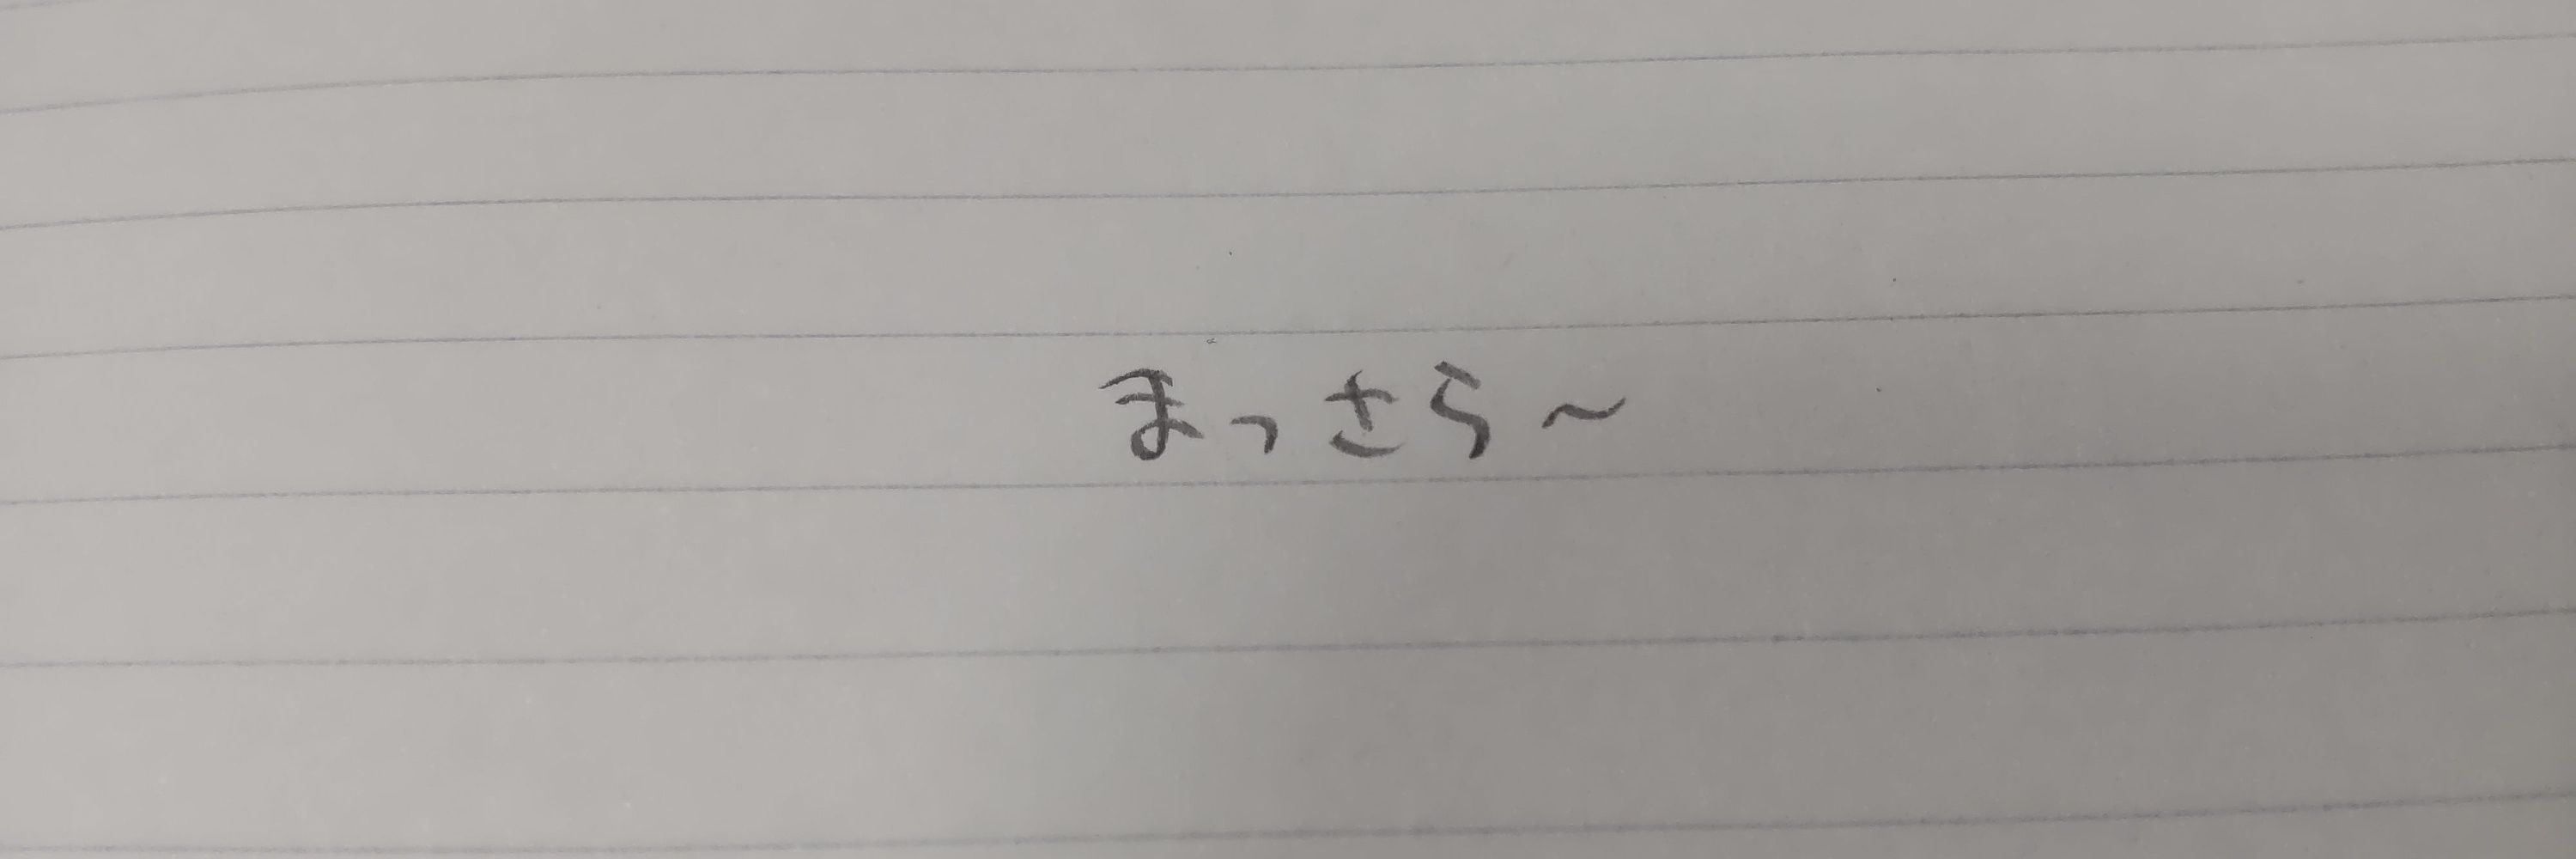 まっさら～